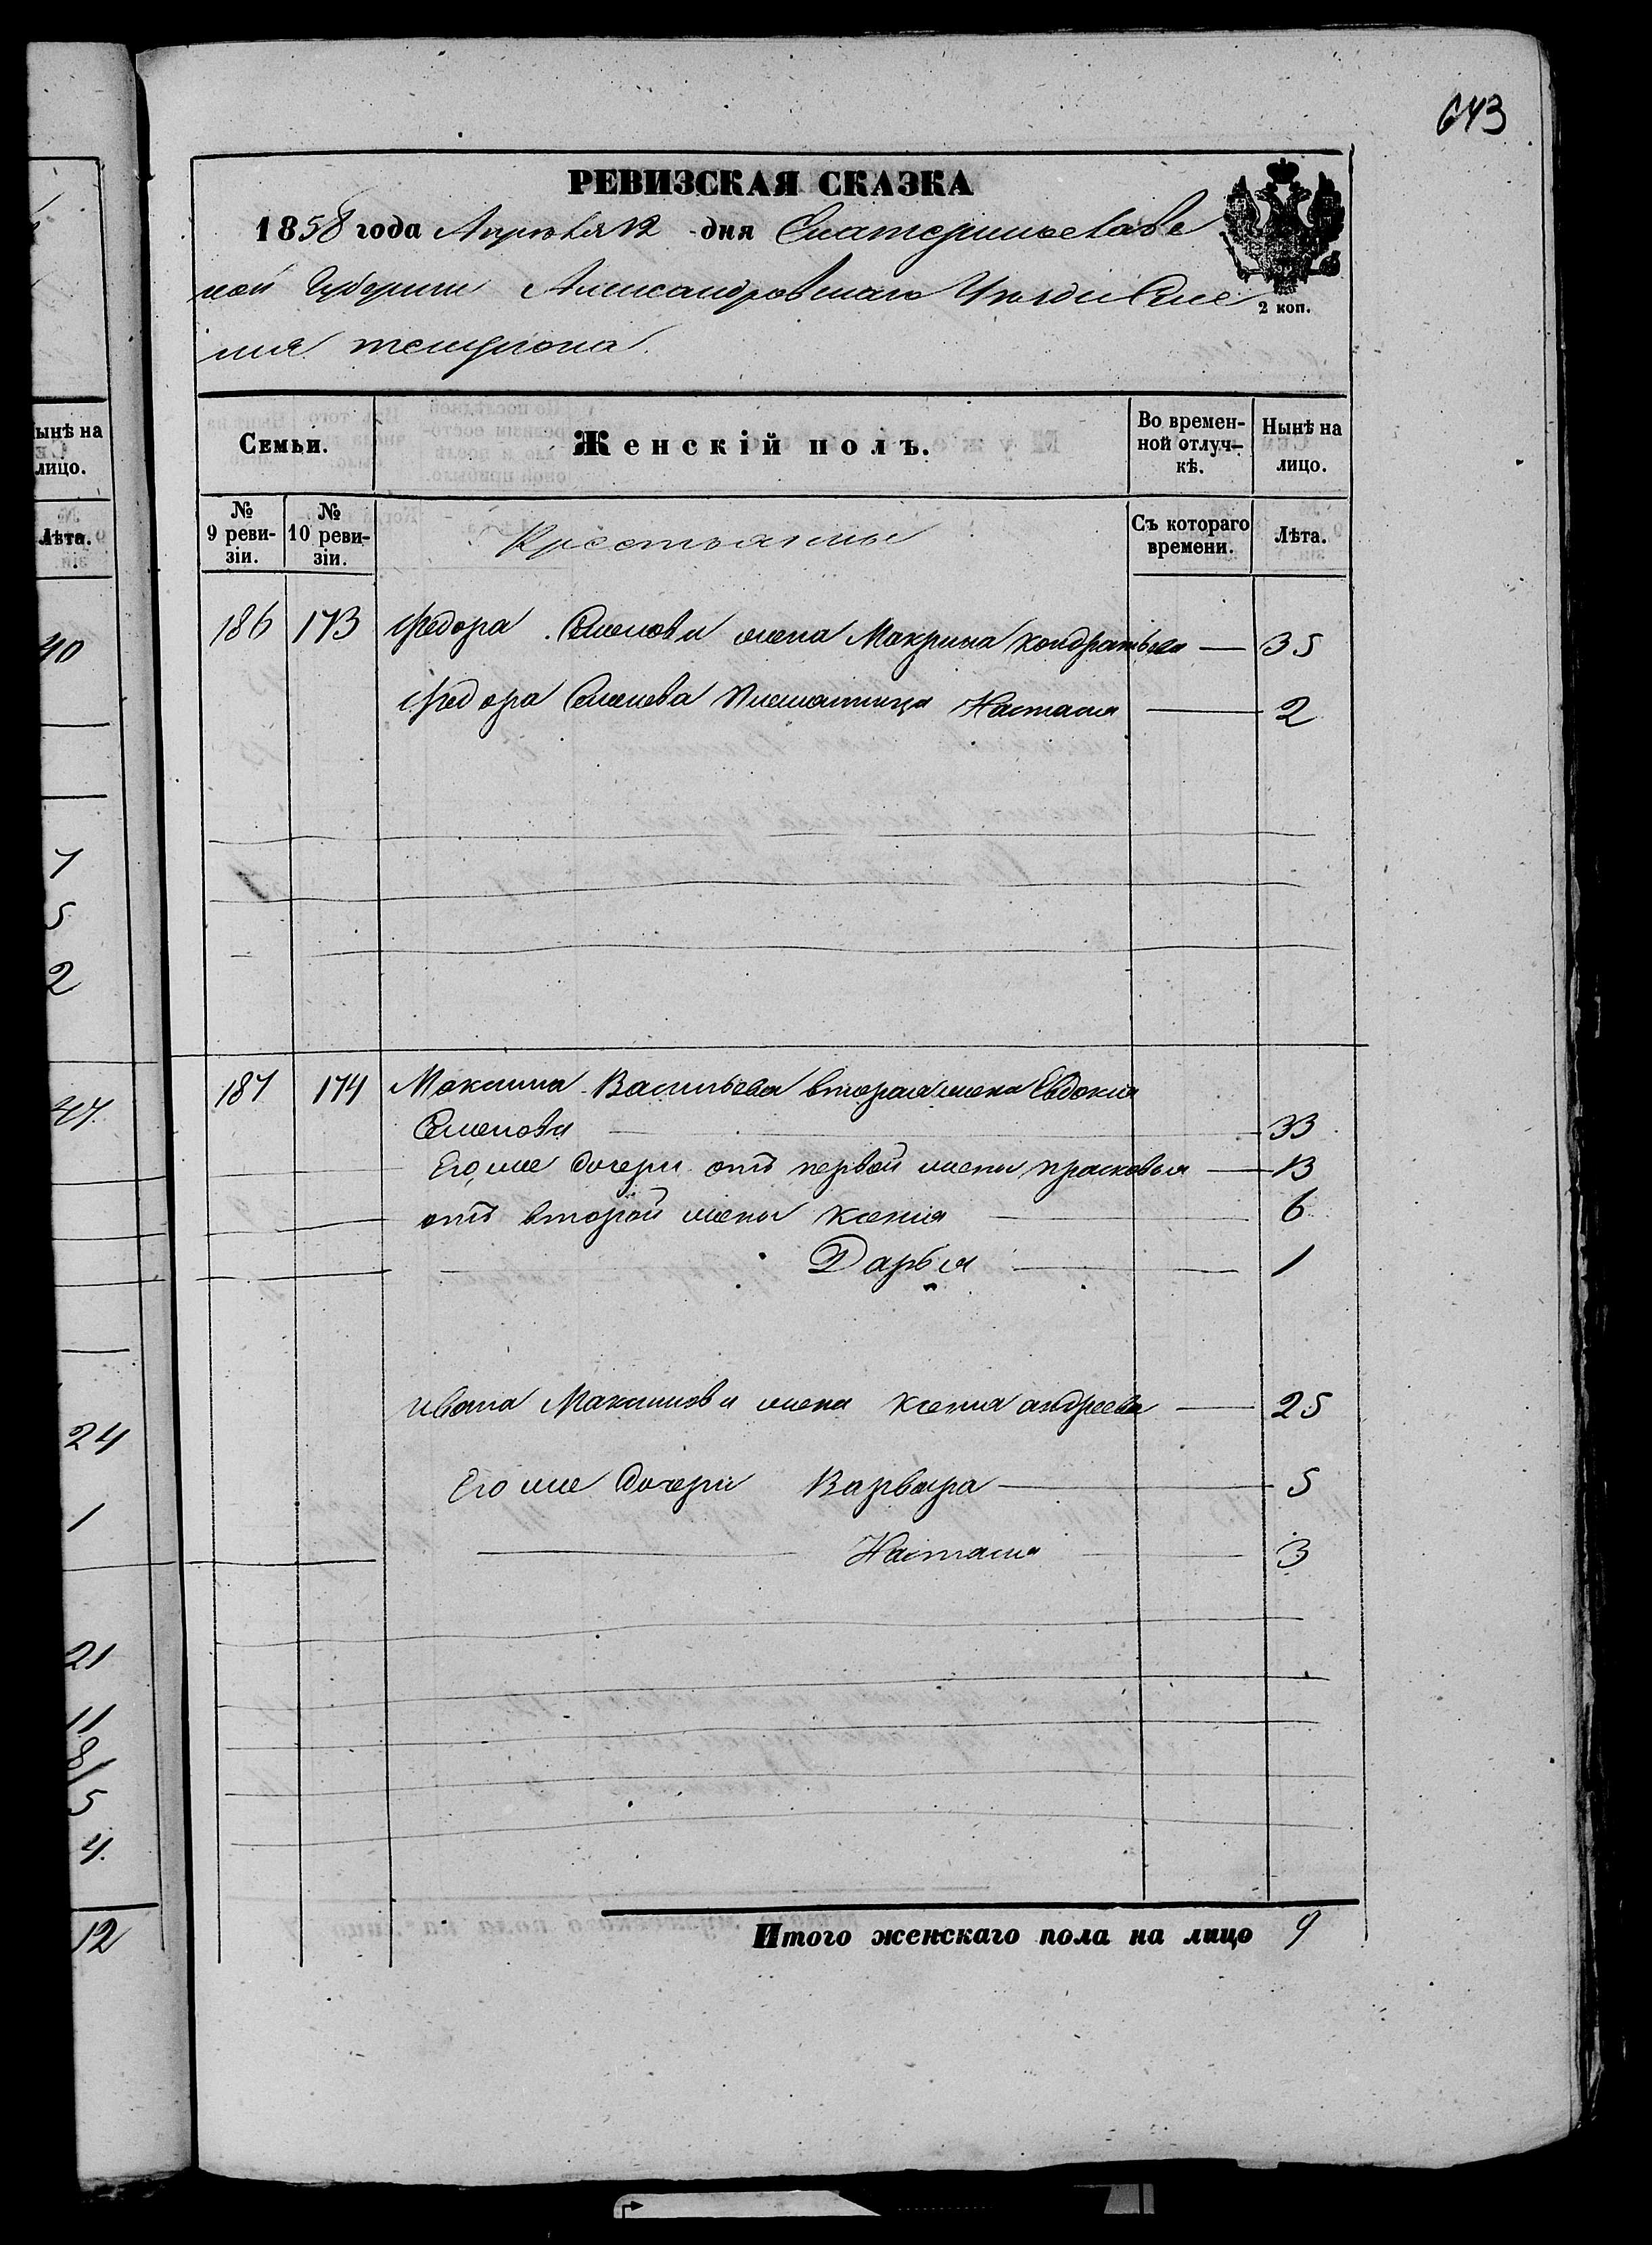 643
РЕВИЗСКАЯ СКАЗКА
1858 года Апреля 12 дня Екатеринослав
ской Губернии Александровскаго Уезда Селе
ния
2 коп.
Семьи. Женскій полъ. Во времен-ной отлуч-кѣ. Нынѣ на лицо.
№ 9 реви-зіи. № 10 реви-зіи. Крестьяны Съ котораго времени. Лѣта.
186 173 Федора Семенова жена Макрина Кондратьева 35
Федора Семенова племянница Настасия 2
187 174 Максима Васильева вторая жена Евдокия
Семенова 33
Его же дочери отъ первой жены прасковья 13
отъ второй жены ксения 6
Дарья 1
ивана Максимова жена ксения андреева 25
Его же дочери Варвара 5
Настасия 3
Итого женскаго пола на лицо 9
ынѣ на
лицо.
Лѣта.
40
7
5
2
47.
24
1
21
11
8/
5
4.
12